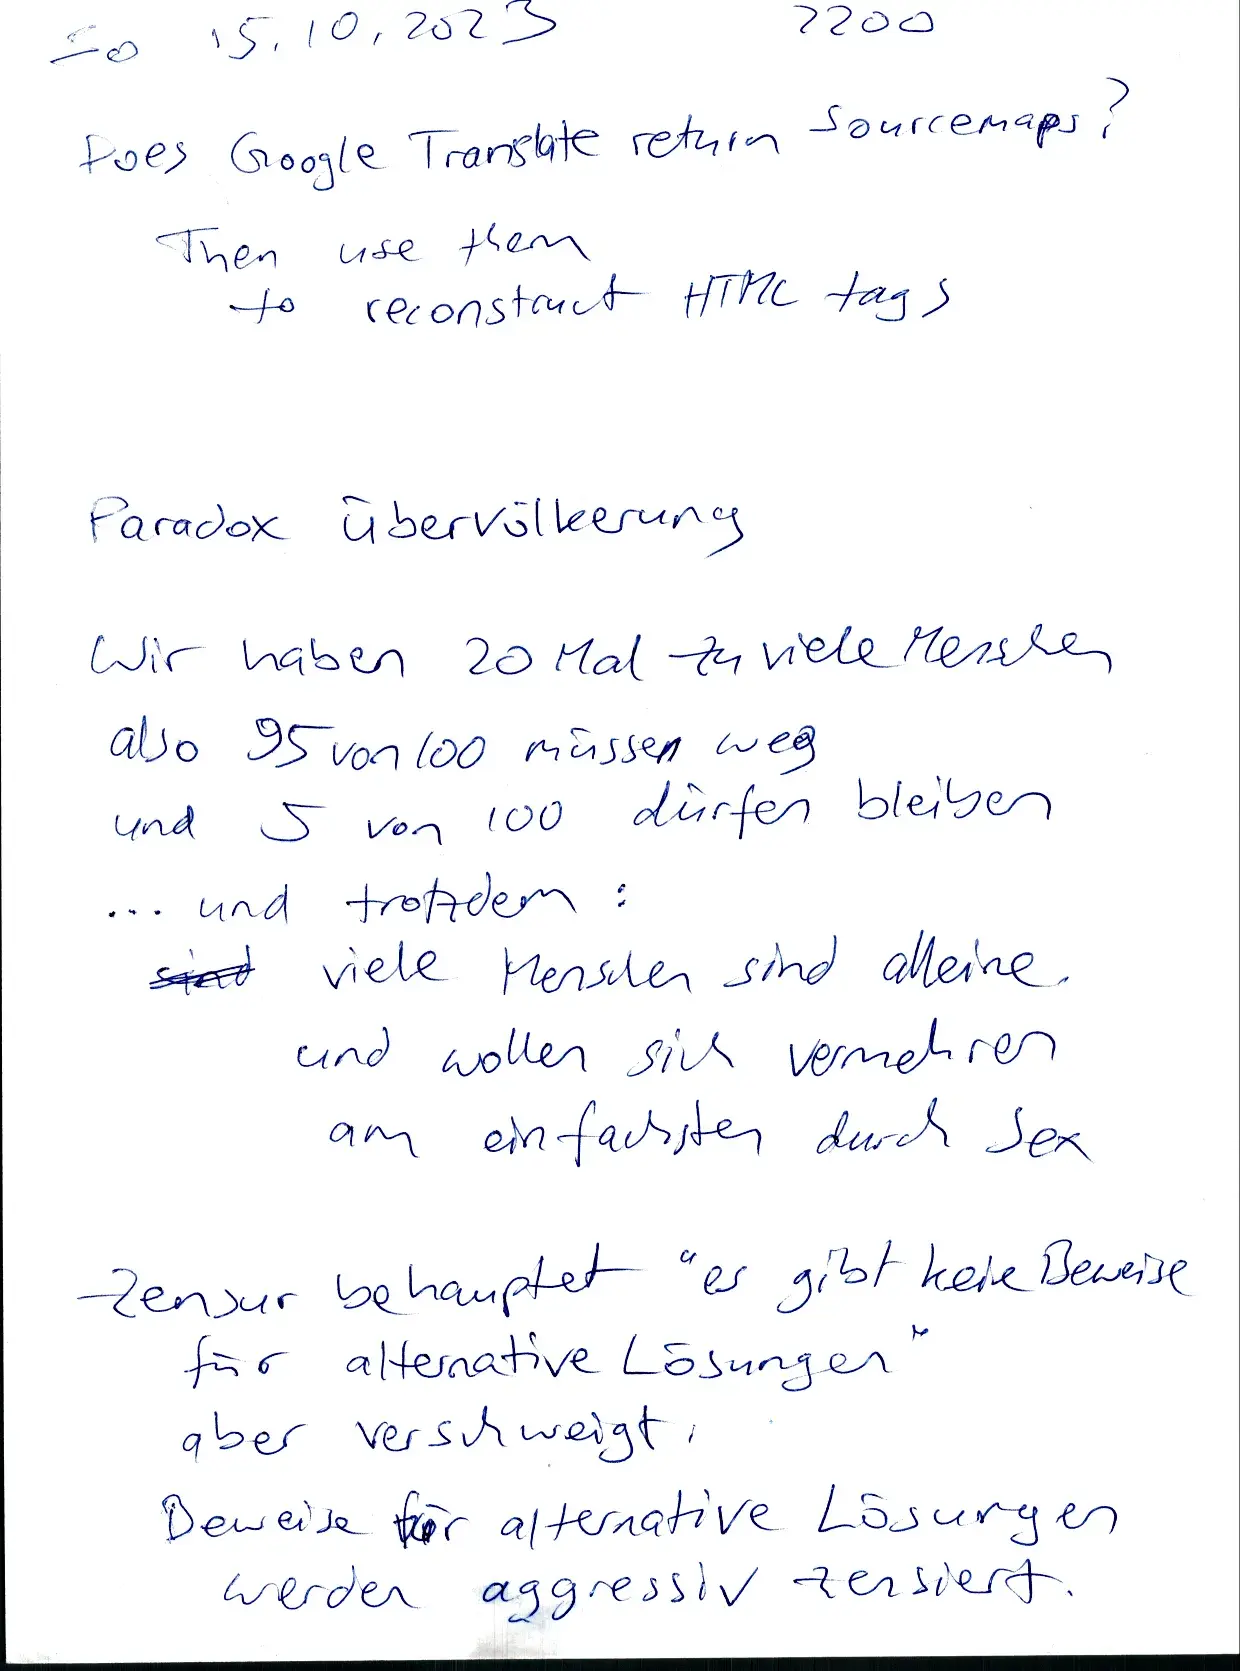 So 15.10.2023 2200
Does Google Translate return sourcemaps?
Then use them
to reconstruct HTML tags
Paradox übervölkerung
Wir haben 20 Mal zu viele Menschen
also 95 von 100 müssen weg
und 5 von 100 dürfen bleiben
... und trotzdem :
sind viele Menschen sind alleine.
und wollen sich vermehren
am einfachsten durch Sex
Zensur behauptet "es gibt keine Beweise
für alternative Lösungen"
aber verschweigt:
Beweise für alternative Lösungen
werden aggressiv zensiert.